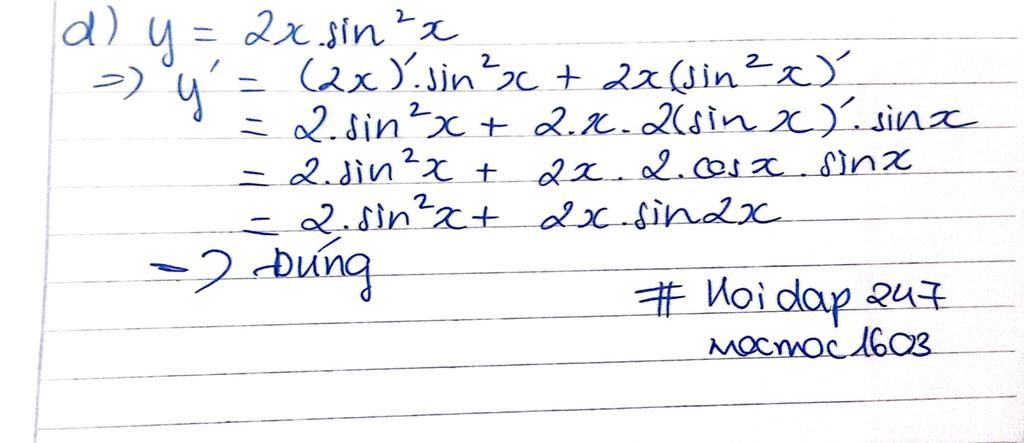 d) y = 2x.sin²x
=> y' = (2x)'.sin²x + 2x(sin²x)'
= 2.sin²x + 2.x.2(sin x)'.sinx
= 2.sin²x + 2x.2.cosx.sinx
= 2.sin²x + 2x.sin2x
-> Đúng
# Hoidap 247
mocmoc1603